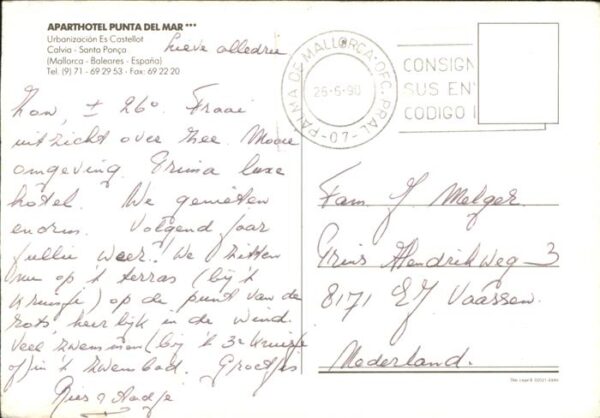 APARTHOTEL PUNTA DEL MAR ***
Urbanización Es Castellot
Calvia - Santa Ponça
(Mallorca - Baleares - España)
Tel. (9) 71 - 69 29 53 - Fax: 69 22 20
Lieve alledrie
Zon, ± 26°. Fraai
uitzicht over zee. Mooie
omgeving. Prima luxe
hôtel. We genieten
enorm. Volgend jaar
jullie weer? We zitten
nu op 't terras (bij 't
kruisje) op de punt van de
rots, heerlijk in de wind.
Veel zwemmen (bij 't 3e kruisje
of) in 't zwembad. Groetjes
PALMA DE MALLORCA-OFC. PRAL-07-
26-6-90
CONSIGN
SUS EN
CODIGO
Fam. J Metger.
Prins Hendrikweg-3
8171 EJ Vaassen.
Nederland.